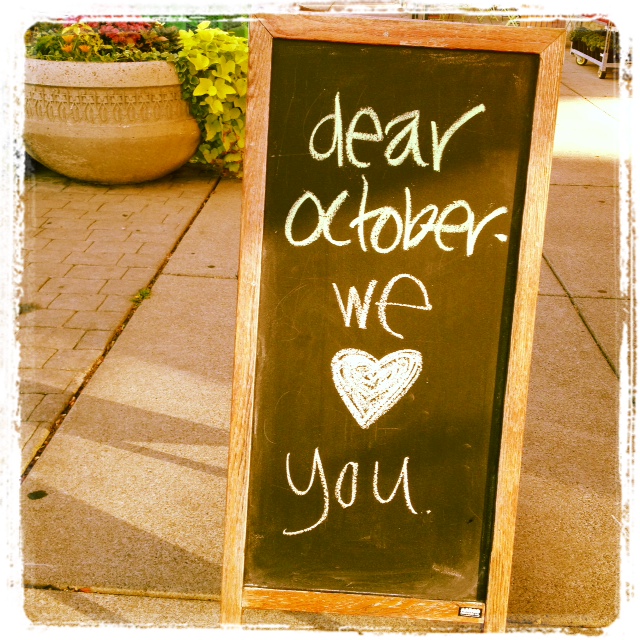 dear
october.
we
♥
you.